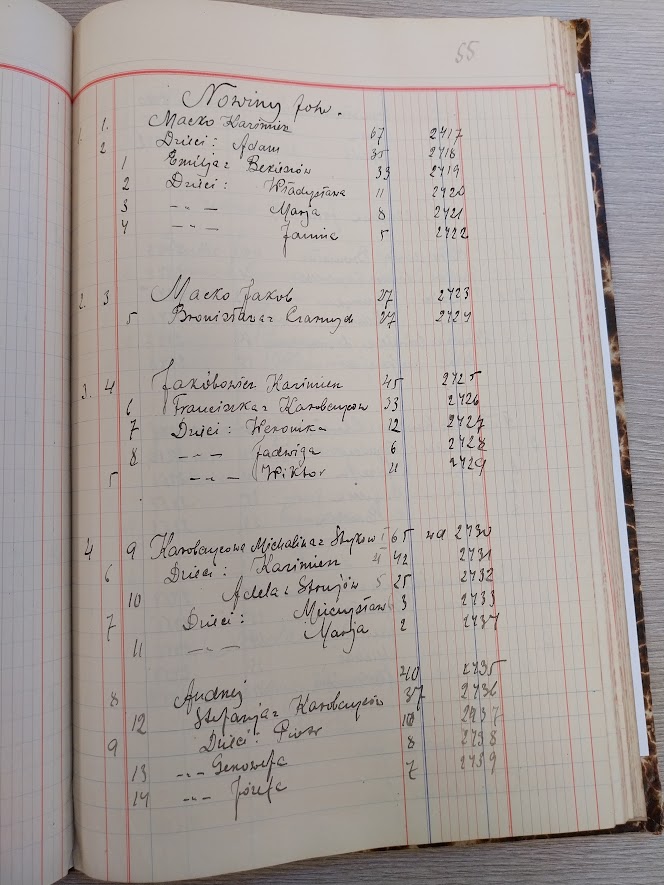 55
Nowiny folw.
1. 1. Macko Kazimierz 67 2417
2 Dzieci: Adam 35 2418
1 Emilja z Bekiszów 33 2419
2 Dzieci: Władysława 11 2420
3 -"- Marja 8 2421
4 -"- Janina 5 2422
2. 3 Macko Jakób 27 2423
5 Bronisława z 27 2424
3. 4 Jakóbowicz Kazimierz 45 2425
6 Franciszka z Karobczyców 33 2426
7 Dzieci: Weronika 12 2427
8 -"- Jadwiga 6 2428
5 -"- Wiktor 11 2429
4 9 Karobczycowa Michalina z 65 2430
6 Dzieci: Kazimierz 42 2431
10 Adela z 25 2432
7 Dzieci: Mieczysław 3 2433
11 -"- Marja 2 2434
8 Andrzej 40 2435
12 Stefanja z Karobczyców 37 2436
9 Dzieci: Piotr 10 2437
13 -"- Genowefa 8 2738
14 -"- Józefa 7 2739